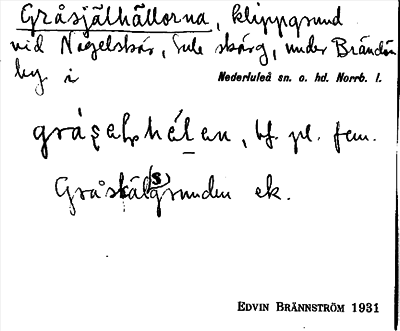 Gråsjälhällorna, klippgrund
vid Någelskär, Sule skärg, under Brändön
by i
Nederluleå sn. o. hd. Norrb. l.
bf. pl. fem.
Gråskäl(s)grunden ek.
EDVIN BRÄNNSTRÖM 1931